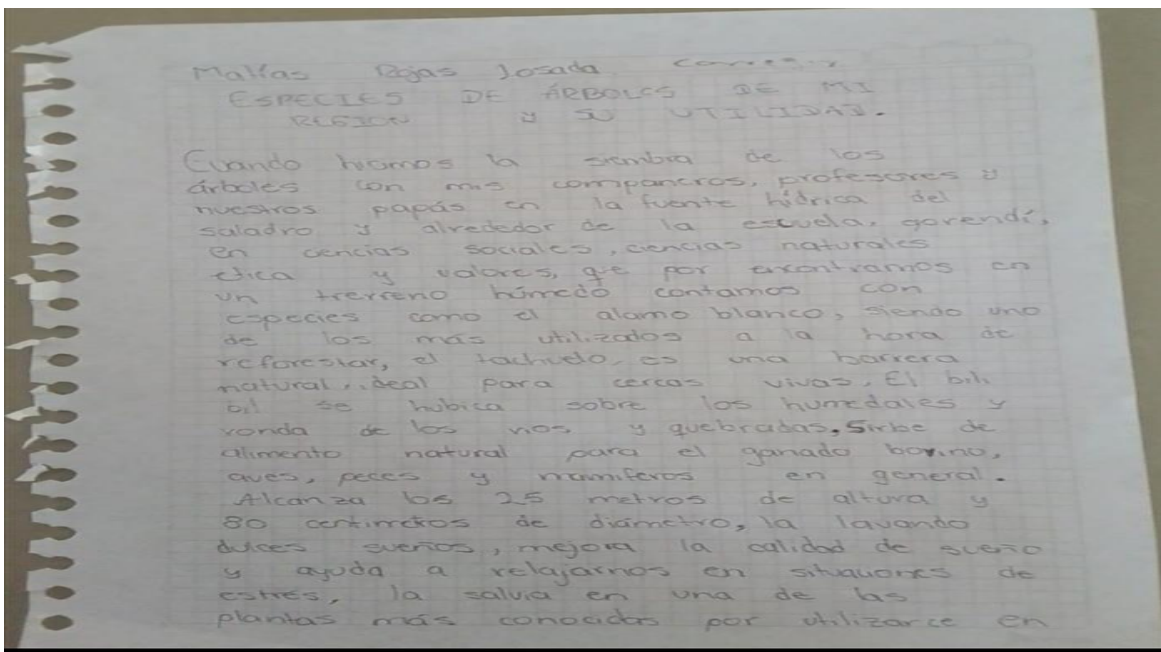 Matías Rojas Josada
ESPECIES DE ÁRBOLES DE MI
REGION y SU UTILIDAD.
Cuando hicimos la siembra de los
árboles con mis compañeros, profesores y
nuestros papás en la fuente hídrica del
saladro y alrededor de la escuela, aprendí,
en cencias sociales, ciencias naturales
etica y valores, que por encontrarnos en
un trerreno húmedo contamos con
especies como el alamo blanco, siendo uno
de los más utilizados a la hora de
reforestar, el tachuelo, es una barrera
natural, ideal para cercas vivas. El bili
bil se hubica sobre los humedales y
ronda de los rios y quebradas, Sirbe de
alimento natural para el ganado bovino,
aves, peces y mamiferos en general.
Alcanza los 25 metros de altura y
80 centimetros de diámetro, la lavando
dulces sueños, mejora la calidad de sueño
y ayuda a relajarnos en situaciones de
estrés, la salvia en una de las
plantas más conocidas por utilizarce en